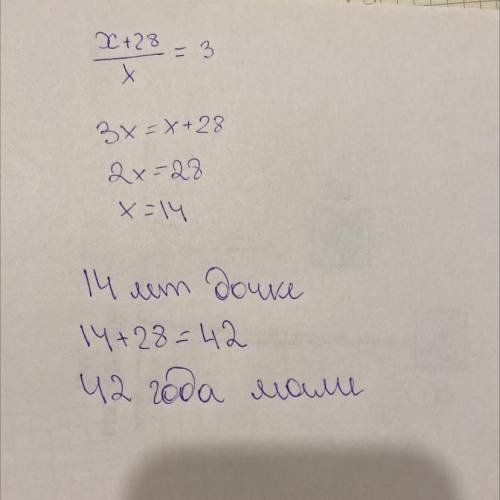 x+28
/x = 3
3x = x+28
2x = 28
x = 14
14 лет дочке
14+28=42
42 года маме